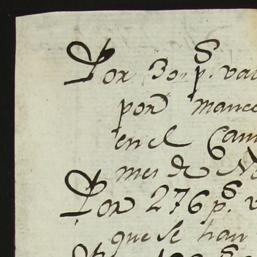 Por 30 p.s va
por mance
en el Cam
mes de No
Por 276 p.s v
que se han